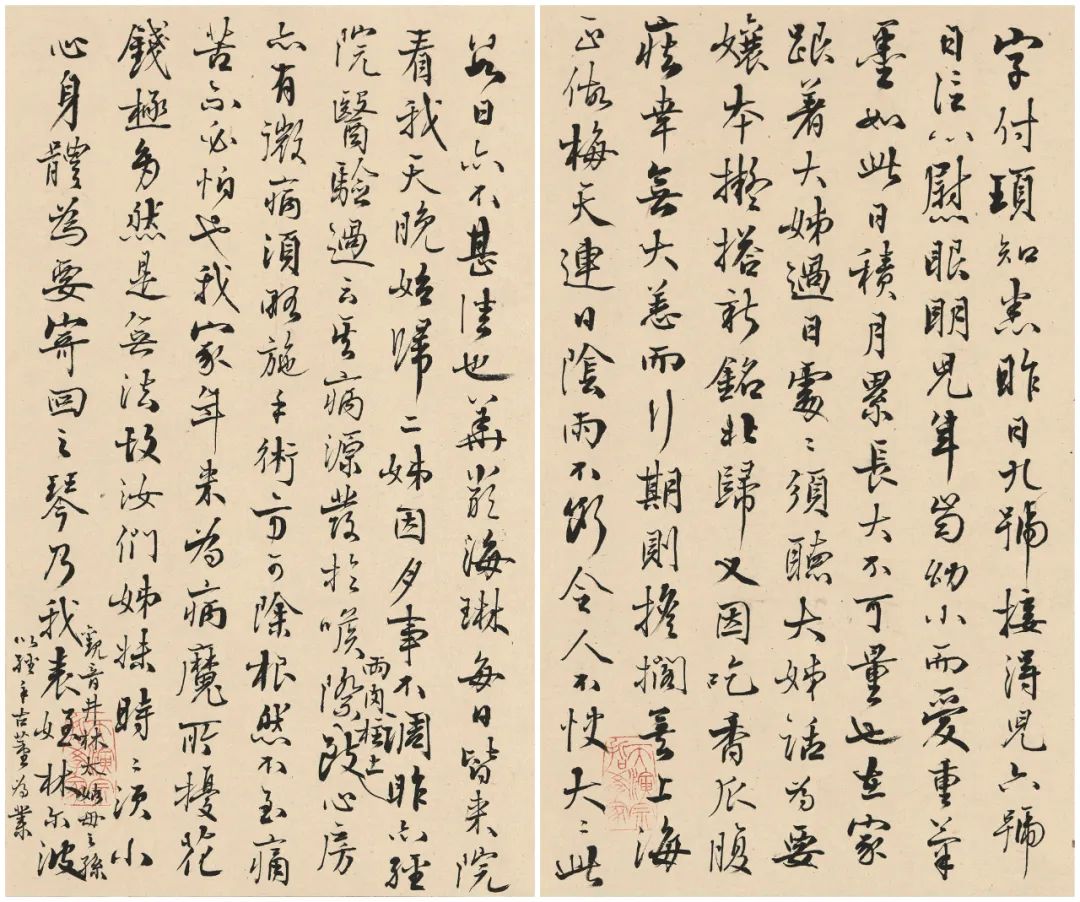 字付頊知悉昨日九號接得兒六號
日信心慰眼明兒年尚幼小而愛重筆
墨如此日積月累長大不可量也在家
跟着大姊過日處〻須聽大姊話為要
孃本擬搭新銘北歸又因吃香瓜腹
疾幸無大恙而行期則擔擱矣上海
正做梅天連日陰雨不斷令人不快大〻此
日亦不甚佳也華嚴海琳每日皆來院
看我天晚始歸二姊因夕事不調昨亦經
院醫驗過云其病源發於喉際兩肉柱上故心房
亦有微病須略施手術方可除根然不至痛
苦亦不必怕也我家年來為病魔所擾花
錢極多然是無法故汝們姊妹時〻須小
心身體為要寄回之琴乃我表姪林尔波
觀音井林太姑母之孫
以經手古董為業